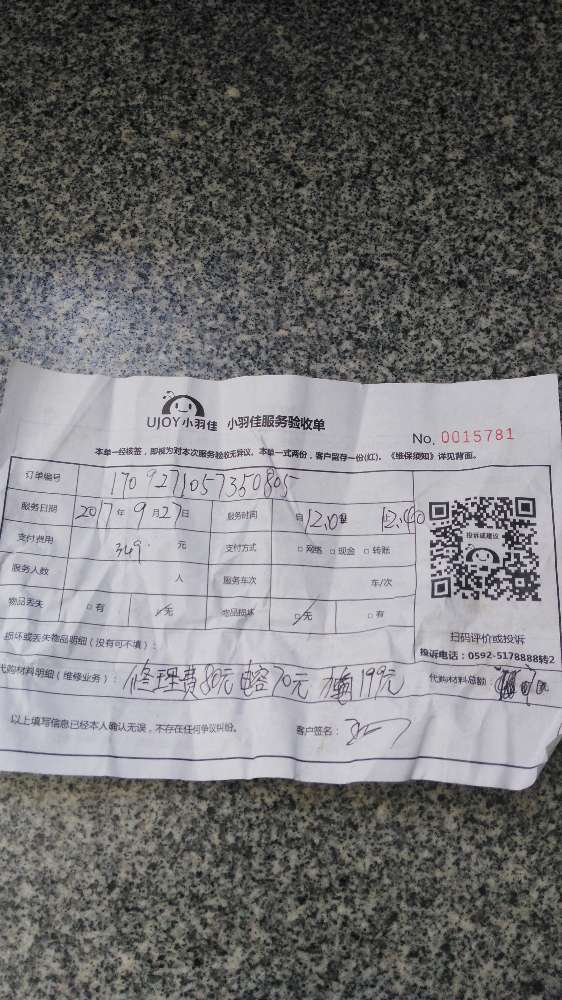 UJOY小羽佳 小羽佳服务验收单
No. 0015781
本单一经核签，即视为对本次服务验收无异议。本单一式两份，客户留存一份(红)。《维保须知》详见背面。
订单编号 1709271057350805
服务日期 2017年9月27日 服务时间 自12.0 止12.40
支付费用 349. 元 支付方式 □网络 □现金 □转账
服务人数 人 服务车次 车/次
物品丢失 □有 ✓无 物品损坏 ✓无 □有
投诉或建议
扫码评价或投诉
投诉电话：0592-5178888转2
损坏或丢失物品明细（没有可不填）：
代购材料明细（维修业务）： 修理费80元 电容70元 199元 代购材料总额：
以上填写信息已经本人确认无误，不存在任何争议纠纷。 客户签名：